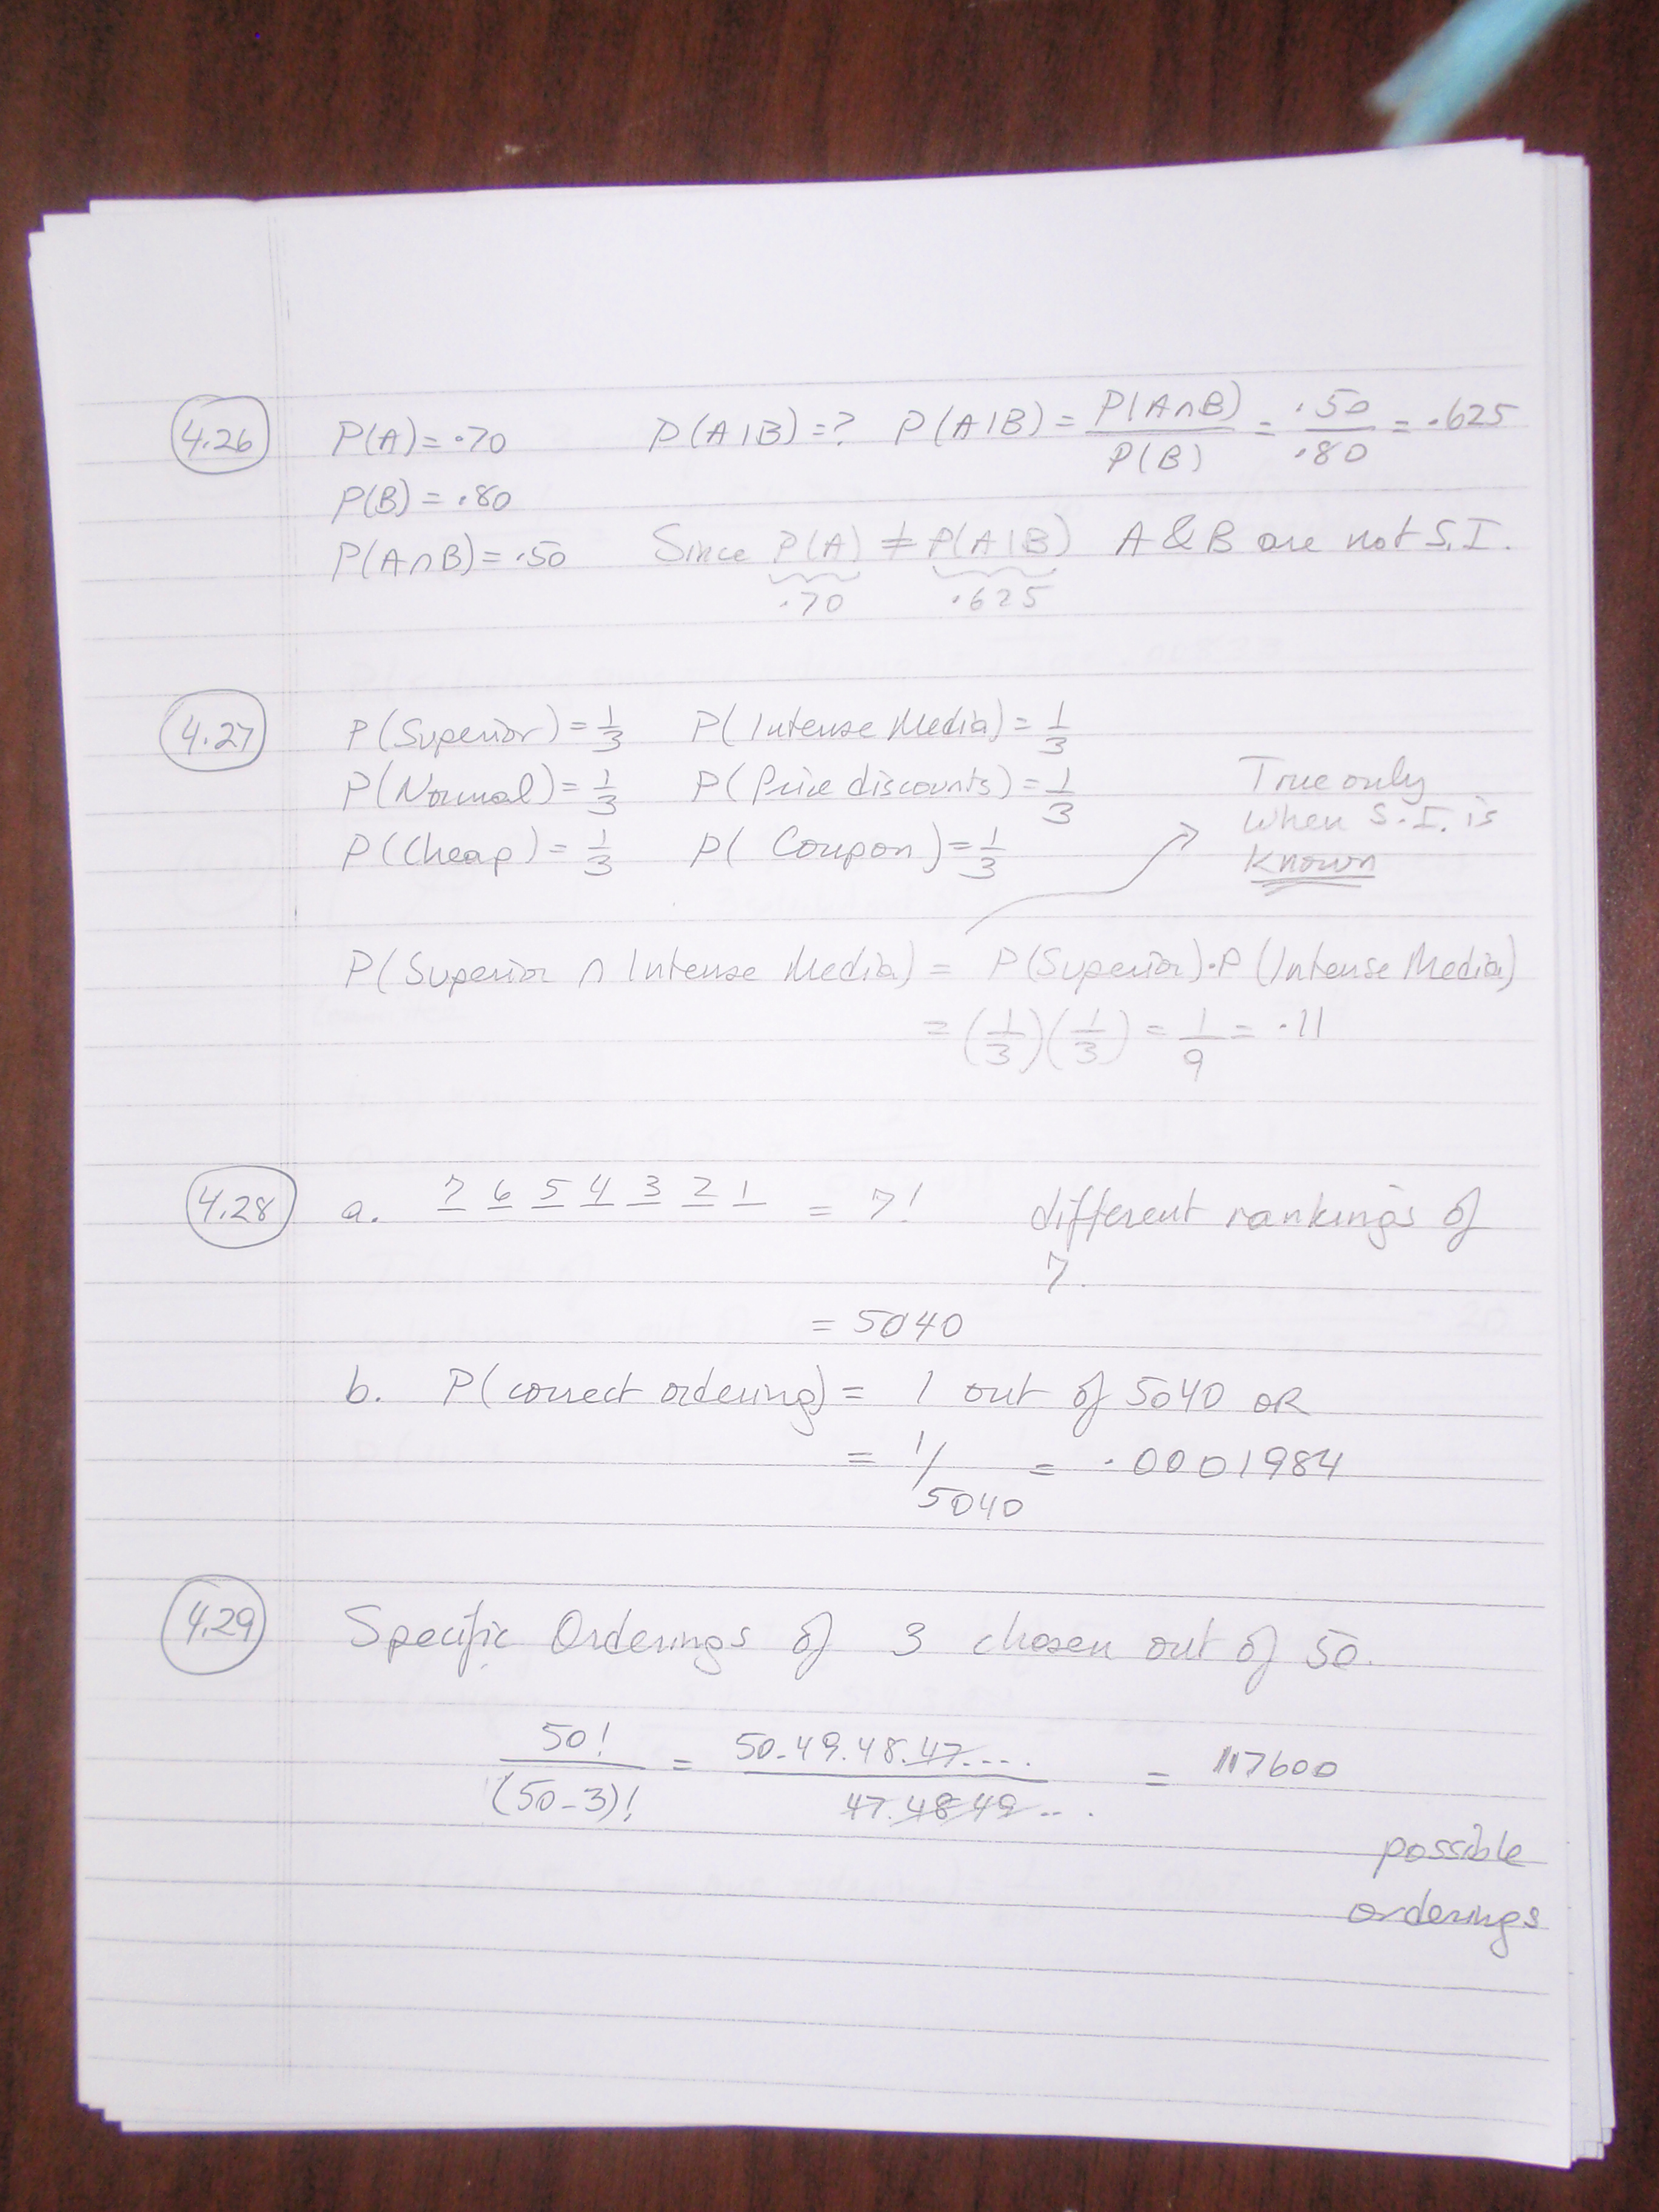 4.26 P(A) = .70 P(A|B) = ? P(A|B) = P(A∩B)/P(B) = .50/.80 = .625
P(B) = .80
P(A∩B) = .50 Since P(A) ≠ P(A|B) A & B are not S.I.
.70 .625
4.27 P(Superior) = 1/3 P(Intense Media) = 1/3
P(Normal) = 1/3 P(Price discounts) = 1/3 True only
when S.I. is
P(Cheap) = 1/3 P( Coupon) = 1/3 known
P(Superior ∩ Intense Media) = P(Superior)·P(Intense Media)
= (1/3)(1/3) = 1/9 = .11
4.28 a. 7 6 5 4 3 2 1 = 7! different rankings of
7.
= 5040
b. P(correct ordering) = 1 out of 5040 OR
= 1/5040 = .0001984
4.29 Specific Orderings of 3 chosen out of 50.
50!/(50-3)! = 50.49.48.47..../47.48.49... = 117600
possible
orderings